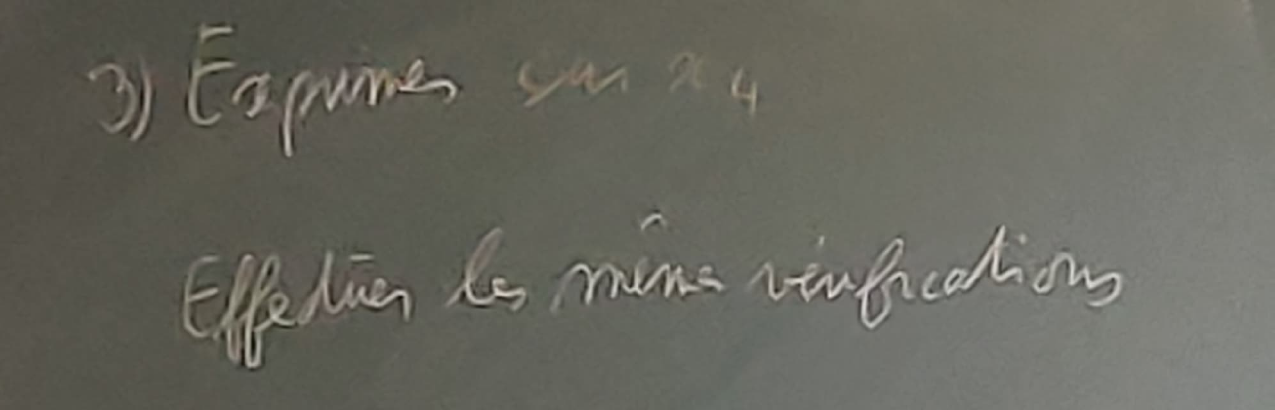 3) Exprimer sur x₄
Effectuer les même vérifications